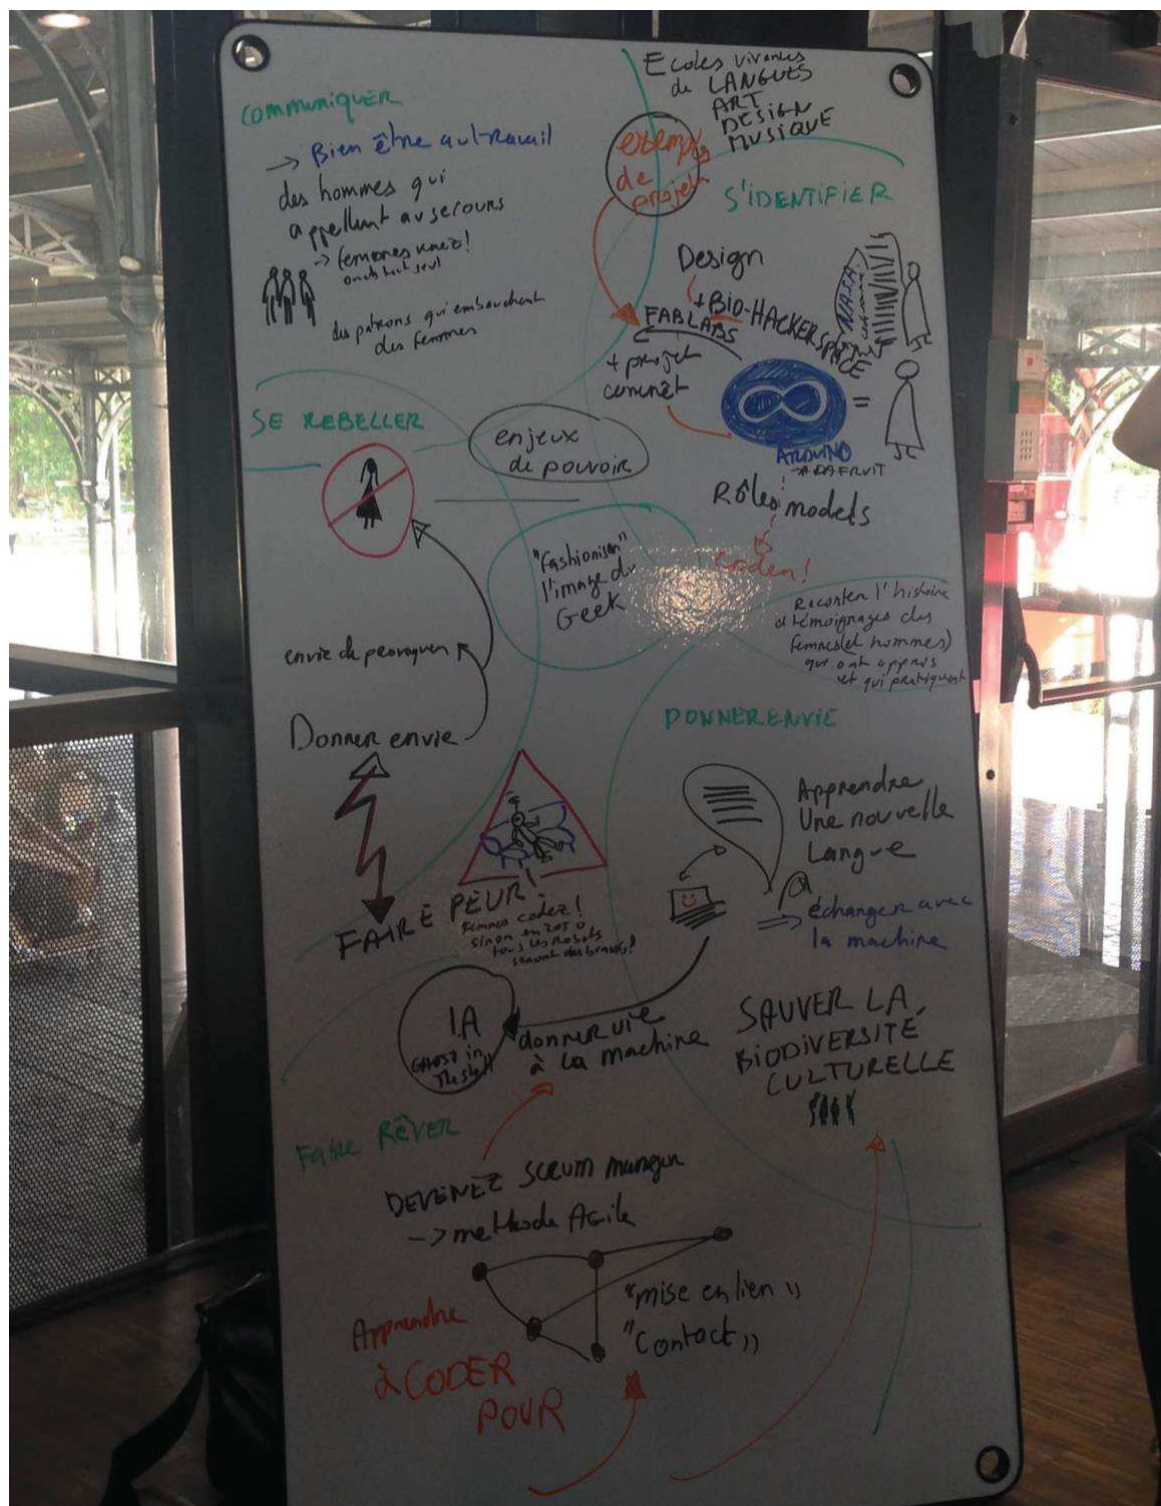 COMMUNIQUER
→ Bien être au travail
des hommes qui
appellent au secours
→ femmes venez!
on est tout seul
des patrons qui embauchent
des femmes
Ecoles vivantes
de LANGUES
ART
DESIGN
MUSIQUE
exemple
de
projets
S'IDENTIFIER
Design
+ BIO-HACKERSPACE
FABLABS
+ projet
concrêt
NASA
=
ARDUINO
→ ADAFRUIT
Rôles models
coder!
Raconter l'histoire
& témoignages des
femmes (et hommes)
qui ont appris
et qui pratiquent
SE REBELLER
enjeux
de pouvoir
"Fashioniser"
l'image du
Geek
envie de provoquer
Donner envie
FAIRE PEUR!
Femmes codez!
sinon en 2050
tous les robots
seront des
DONNER ENVIE
Apprendre
Une nouvelle
Langue
⇒ échanger avec
la machine
I.A
GHOST in
The shell
donner vie
à la machine
SAUVER LA
BIODIVERSITÉ
CULTURELLE
Faire RÊVER
DEVENEZ SCRUM manger
→ methode Agile
"mise en lien"
"Contact"
Apprendre
à CODER
POUR